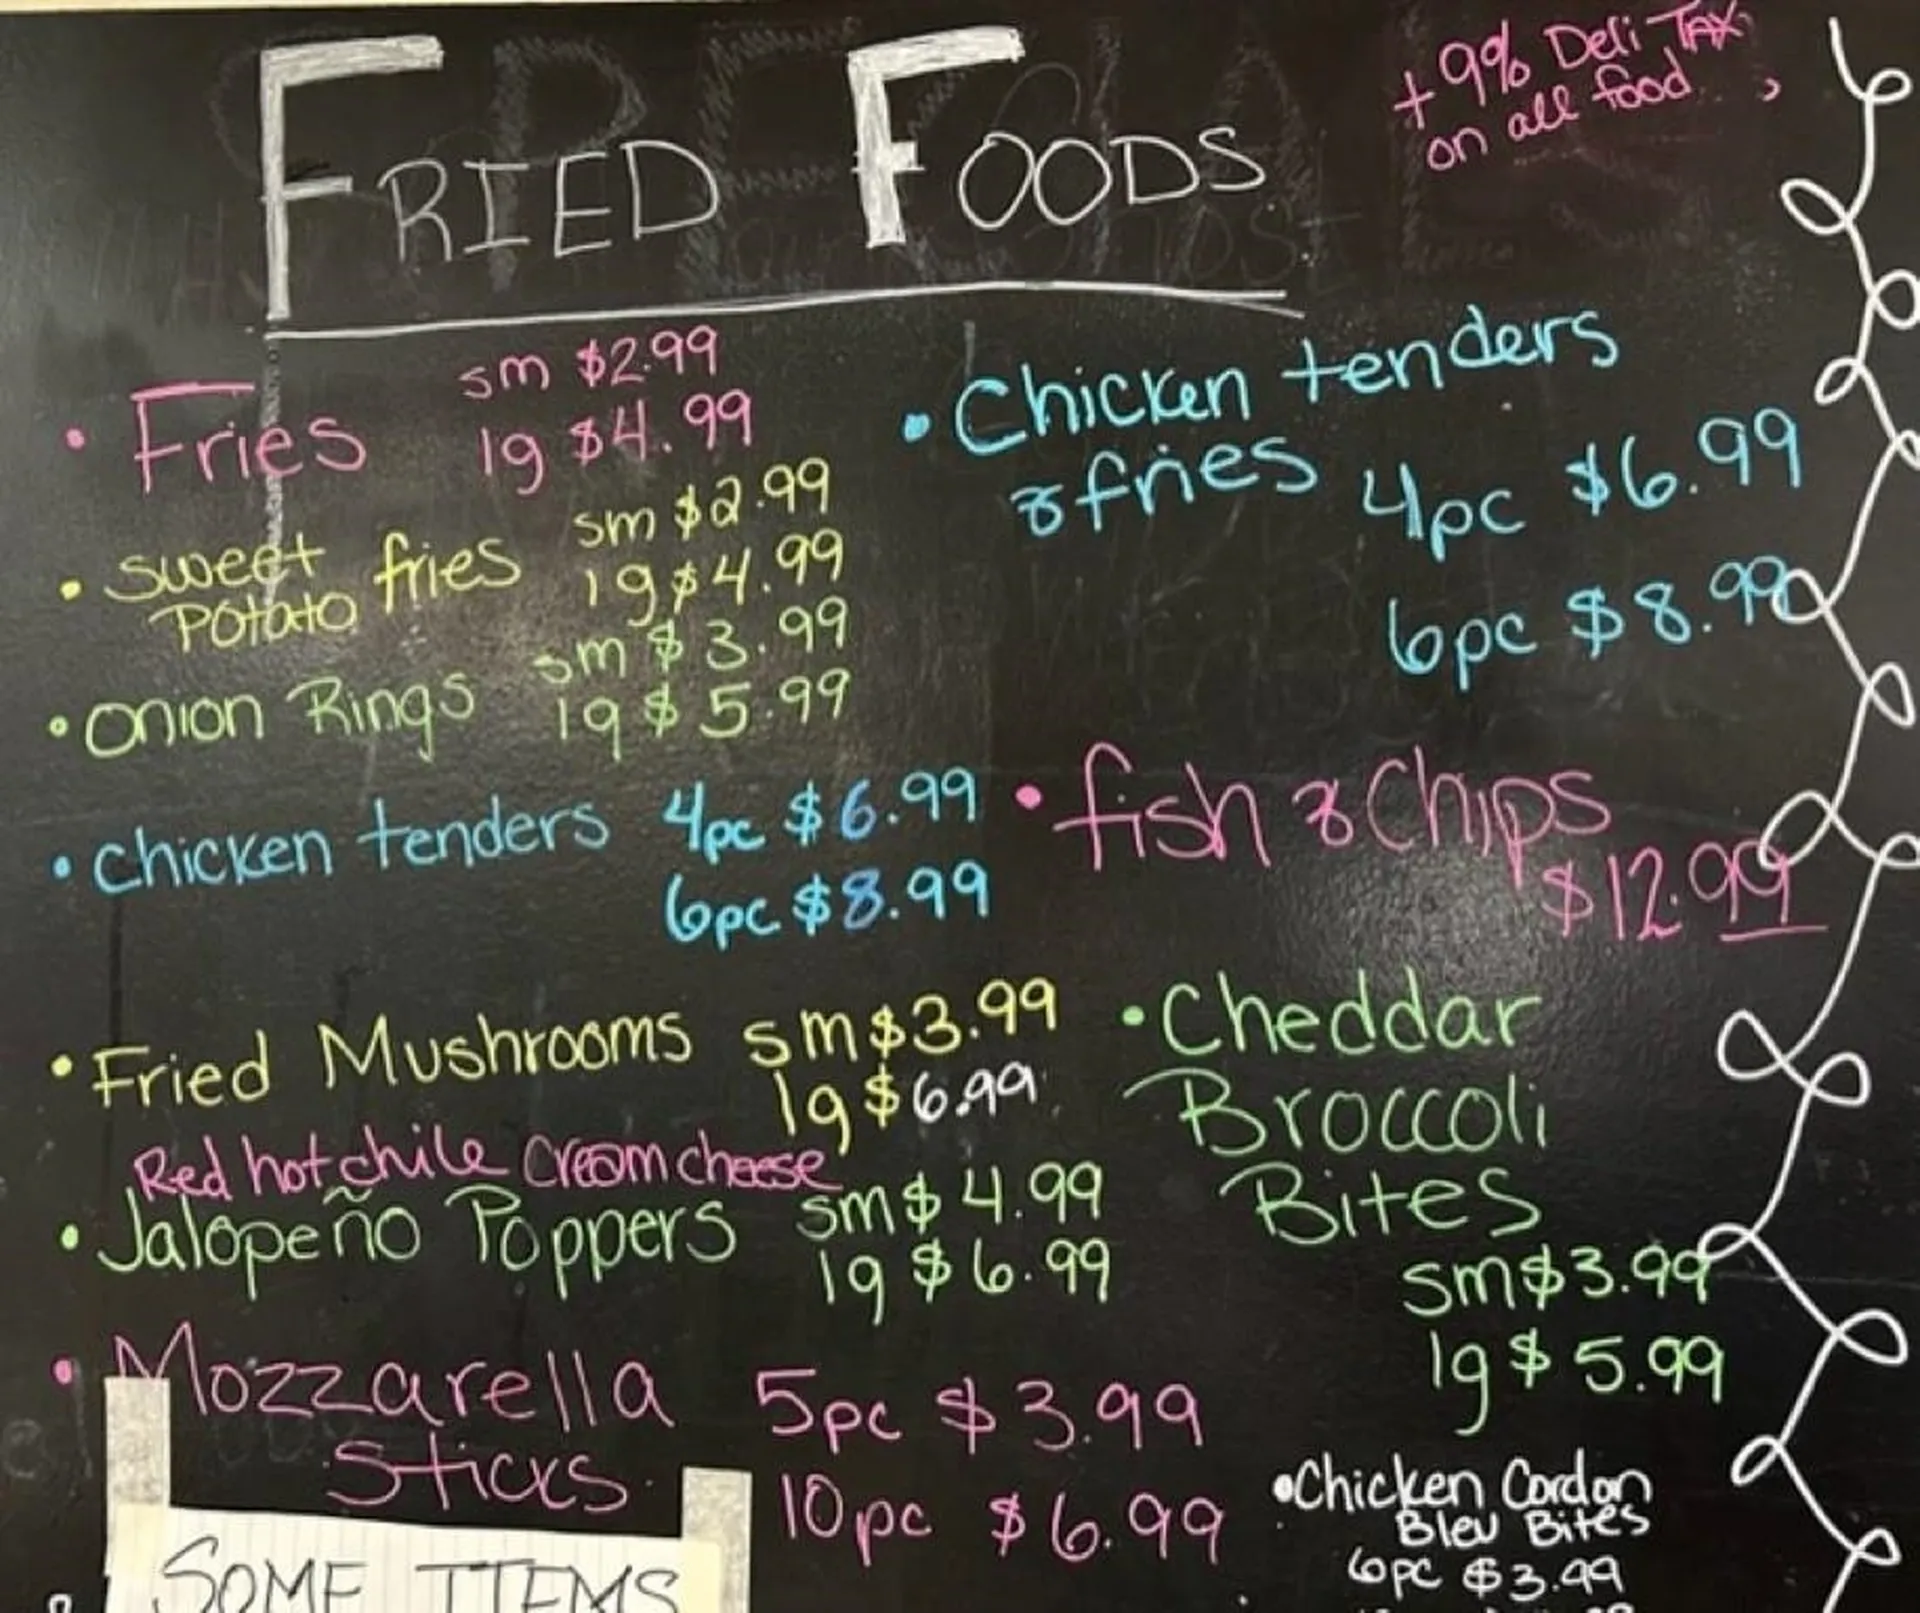 FRIED FOODS
+ 9% Deli TAX
on all food
• Fries sm $2.99
lg $4.99
• sweet potato fries sm $2.99
lg $4.99
• onion Rings sm $3.99
lg $5.99
• chicken tenders 4pc $6.99
6pc $8.99
• Fried Mushrooms sm $3.99
lg $6.99
Red hot chile Cream cheese
• Jalopeño Poppers sm $4.99
lg $6.99
• Mozzarella 5pc $3.99
Sticks 10pc $6.99
SOME ITEMS
• Chicken tenders
& fries 4pc $6.99
6pc $8.99
• fish & Chips
$12.99
• Cheddar
Broccoli
Bites
sm $3.99
lg $5.99
• Chicken Cordon
Bleu Bites
6pc $3.99